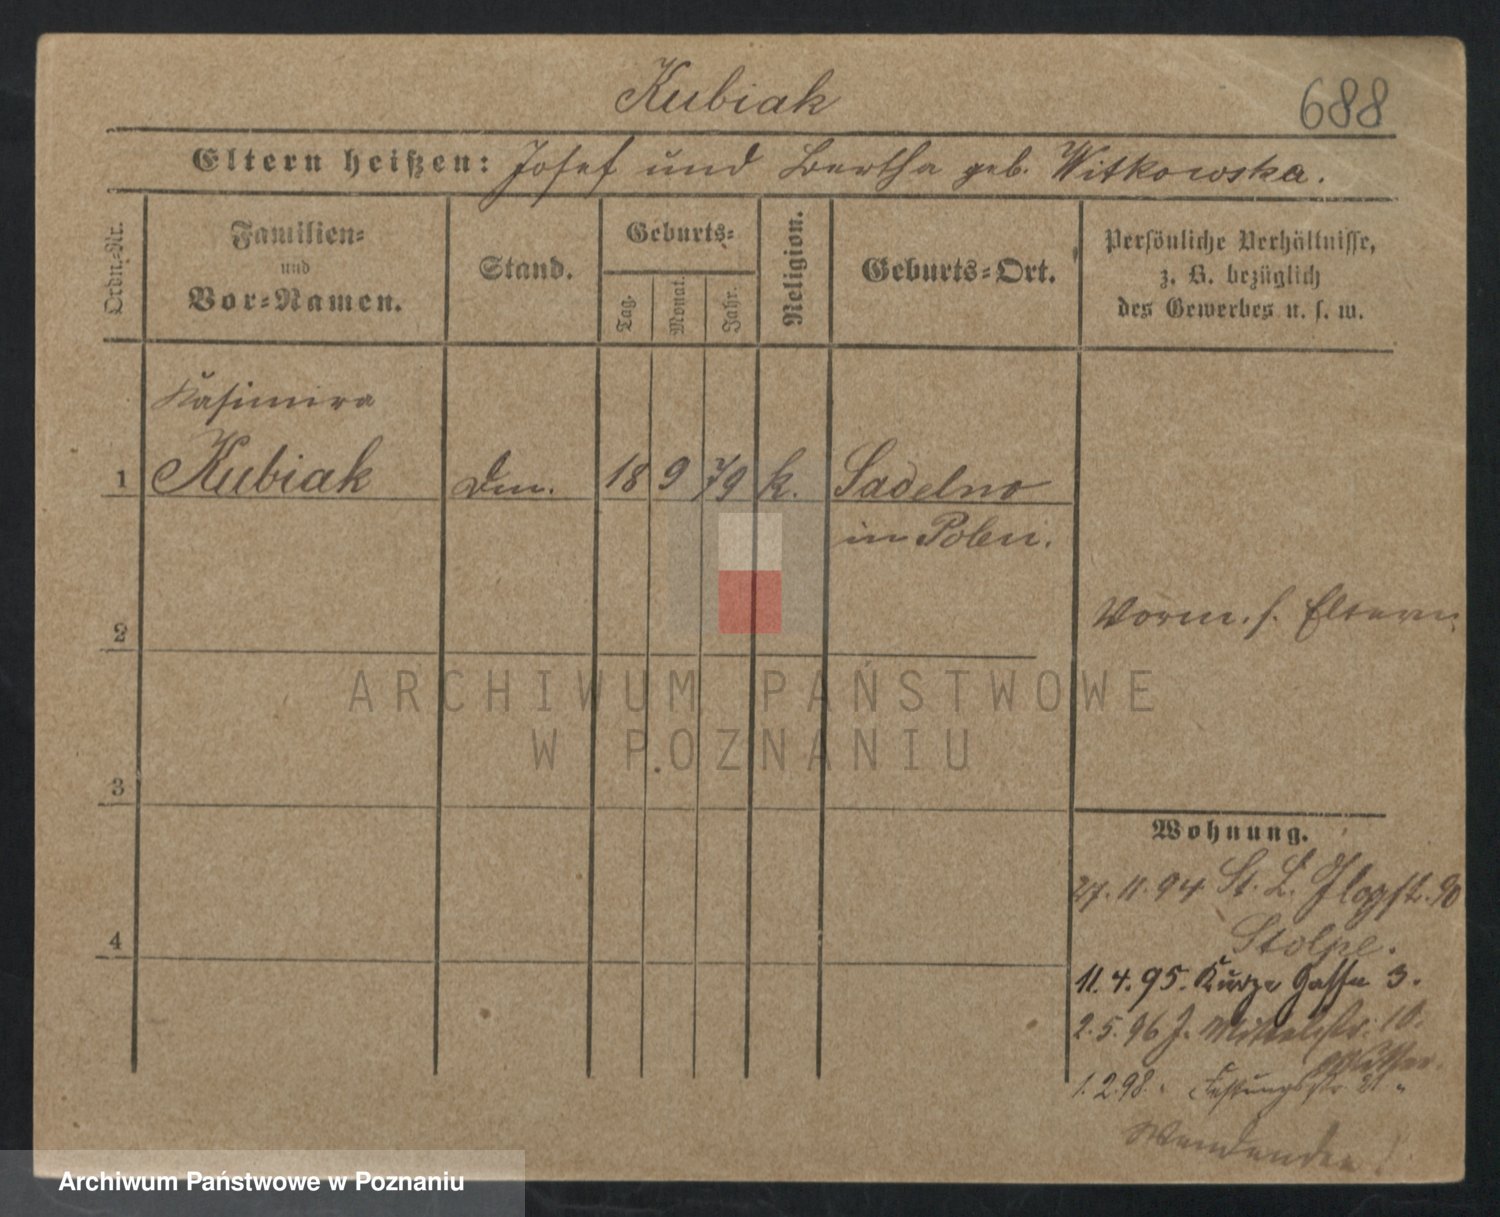 Kubiak
688
Eltern heißen: Josef und Bertha geb. Witkowska.
Ordn.-Nr.
Familien-
und
Vor-Namen.
Stand.
Geburts-
Tag.
Monat.
Jahr.
Religion.
Geburts-Ort.
Persönliche Verhältnisse,
z. B. bezüglich
des Gewerbes u. s. w.
Kasimira
1 Kubiak 18 9 79 k. Sadelno
in Polen.
2
Vorm. s. Eltern
ARCHIWUM PAŃSTWOWE
W POZNANIU
3
Wohnung.
27. 11. 94 St. L.
4
Stolpe.
11. 4. 95. Kurze Gasse 3.
2. 5. 96 J. Mittelstr. 10.
1. 2. 98. Festungsstr.
Archiwum Państwowe w Poznaniu